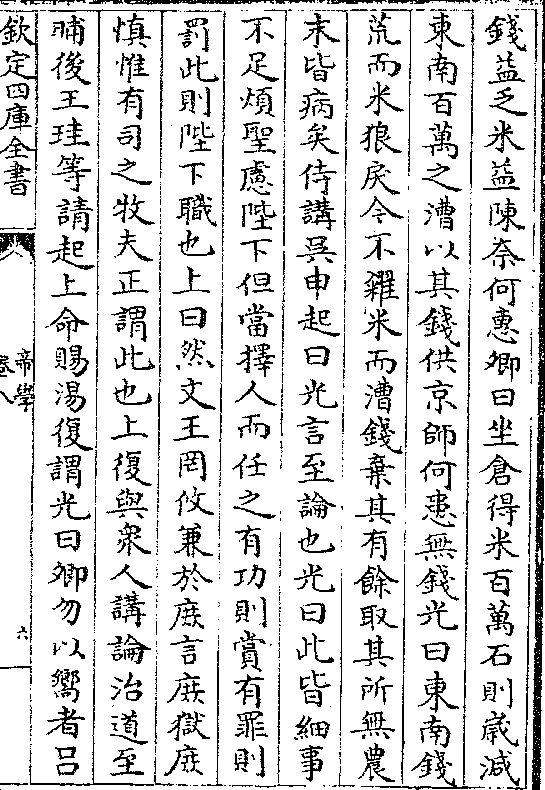 錢益乏米益陳奈何惠卿曰坐倉得米百萬石則歲減
東南百萬之漕以其錢供京師何患無錢光曰東南錢
荒而米狼戾今不糴米而漕錢棄其有餘取其所無農
末皆病矣侍講吳申起曰光言至論也光曰此皆細事
不足煩聖慮陛下但當擇人而任之有功則賞有罪則
罰此則陛下職也上曰然文王罔攸兼於庶言庶獄庶
慎惟有司之牧夫正謂此也上復與衆人講論治道至
晡後王珪等請起上命賜湯復謂光曰卿勿以嚮者呂
欽定四庫全書
帝學
卷八
六